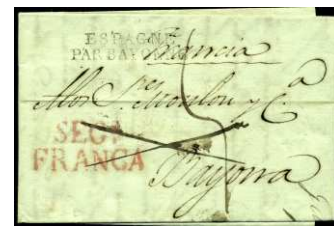 ESPAGNE
PAR BAYONNE
Francia
A los S.res
y C.a
SEGA
FRANCA
Bayona